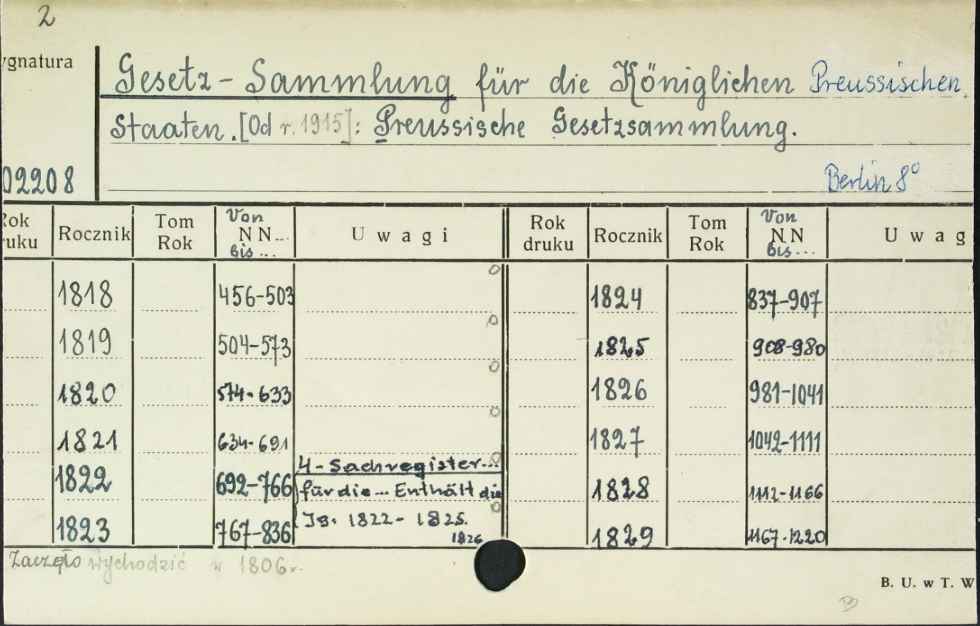 2
ygnatura
Gesetz-Sammlung für die Königlichen Preussischen
Staaten. [Od r. 1915]: Preussische Gesetzsammlung.
02208
Berlin 8°
Rok druku Rocznik Tom Rok Von NN... bis... Uwagi Rok druku Rocznik Tom Rok Von NN bis... Uwag
1818 456-503 1824 837-907
1819 504-573 1825 908-980
1820 574-633 1826 981-1041
1821 634-691 1827 1042-1111
4-Sachregister...
1822 692-766 für die... Enthält die 1828 1112-1166
Jg. 1822-1825.
1826
1823 767-836 1829 1167-1220
Zaczęło wychodzić w 1806.
B. U. w T. W